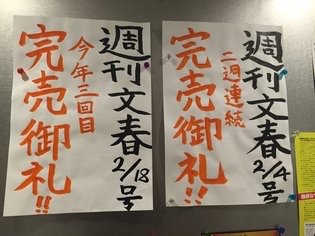 週刊文春2/18号
今年三回目
完売御礼!!
週刊文春2/4号
二週連続
完売御礼!!